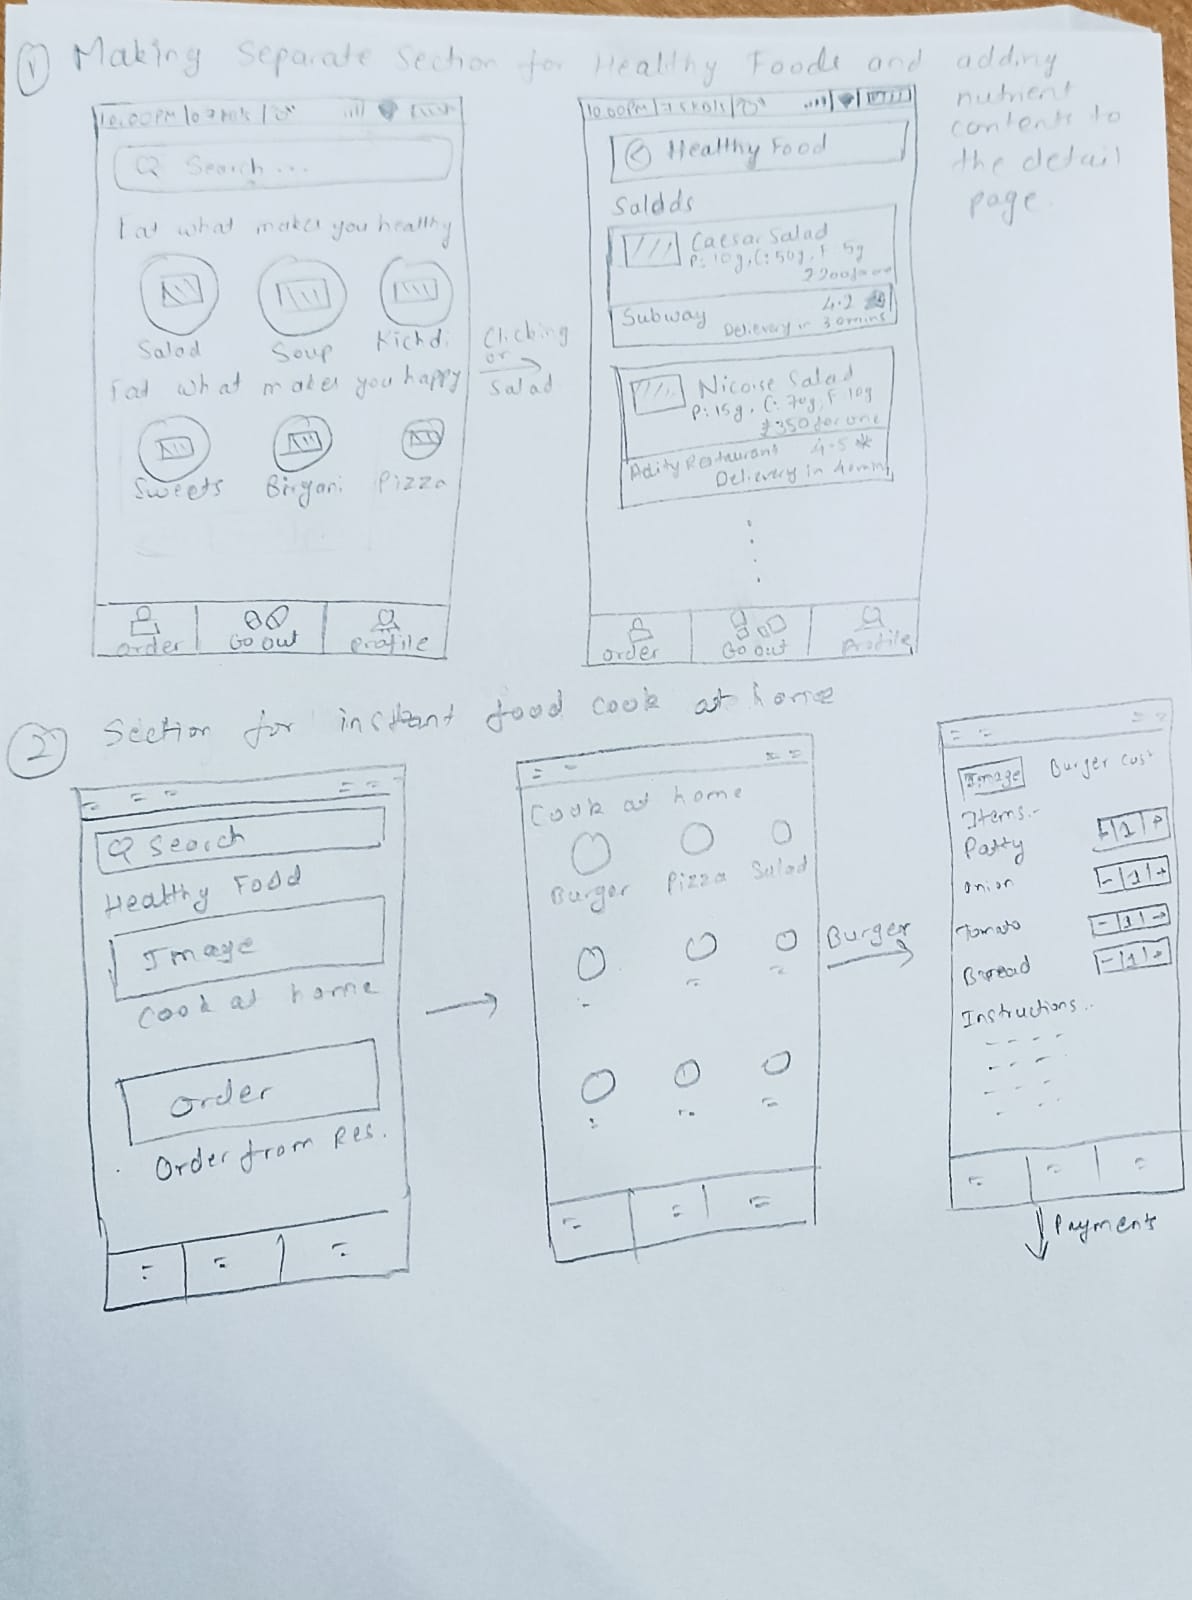 ① Making Separate Section for Healthy Foods and adding
nutrient
contents to
the detail
page.
10:00PM
Search...
Eat what makes you healthy
Salad Soup Kichdi
Eat what makes you happy
Sweets Biryani Pizza
order Go out profile
Clicking
on
Salad
10:00PM
Healthy Food
Saldds
Caesar Salad
P: 10g, C: 50g, F 5g
Subway 4.2
Delievery in 30mins
Nicoise Salad
P: 15g, C: 70g, F 10g
₹350 for one
Restaurant 4.5 *
Delievery in 40mins
order Go out Profile
② Section for instant food cook at home
Search
Healthy Food
Image
Cook at home
Order
Order from Res.
Cook at home
Burger Pizza Salad
Burger
Image Burger Cost
Items:-
Patty - | 1 | +
Onion - | 1 | +
Tomato - | 1 | +
Bread - | 1 | +
Instructions..
Payments